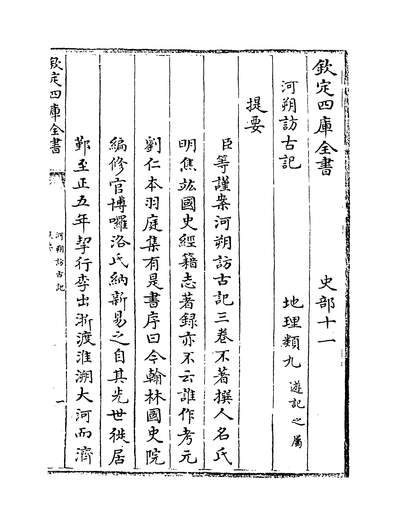 欽定四庫全書
史部十一
河朔訪古記
地理類九遊記之屬
提要
臣等謹案河朔訪古記三卷不著撰人名氏
明焦竑國史經籍志著録亦不云誰作考元
劉仁本羽庭集有是書序曰今翰林國史院
編修官博囉洛氏納新易之自其先世徙居
鄞至正五年挈行李出浙渡淮溯大河而濟
欽定四庫全書
河朔訪古記
一